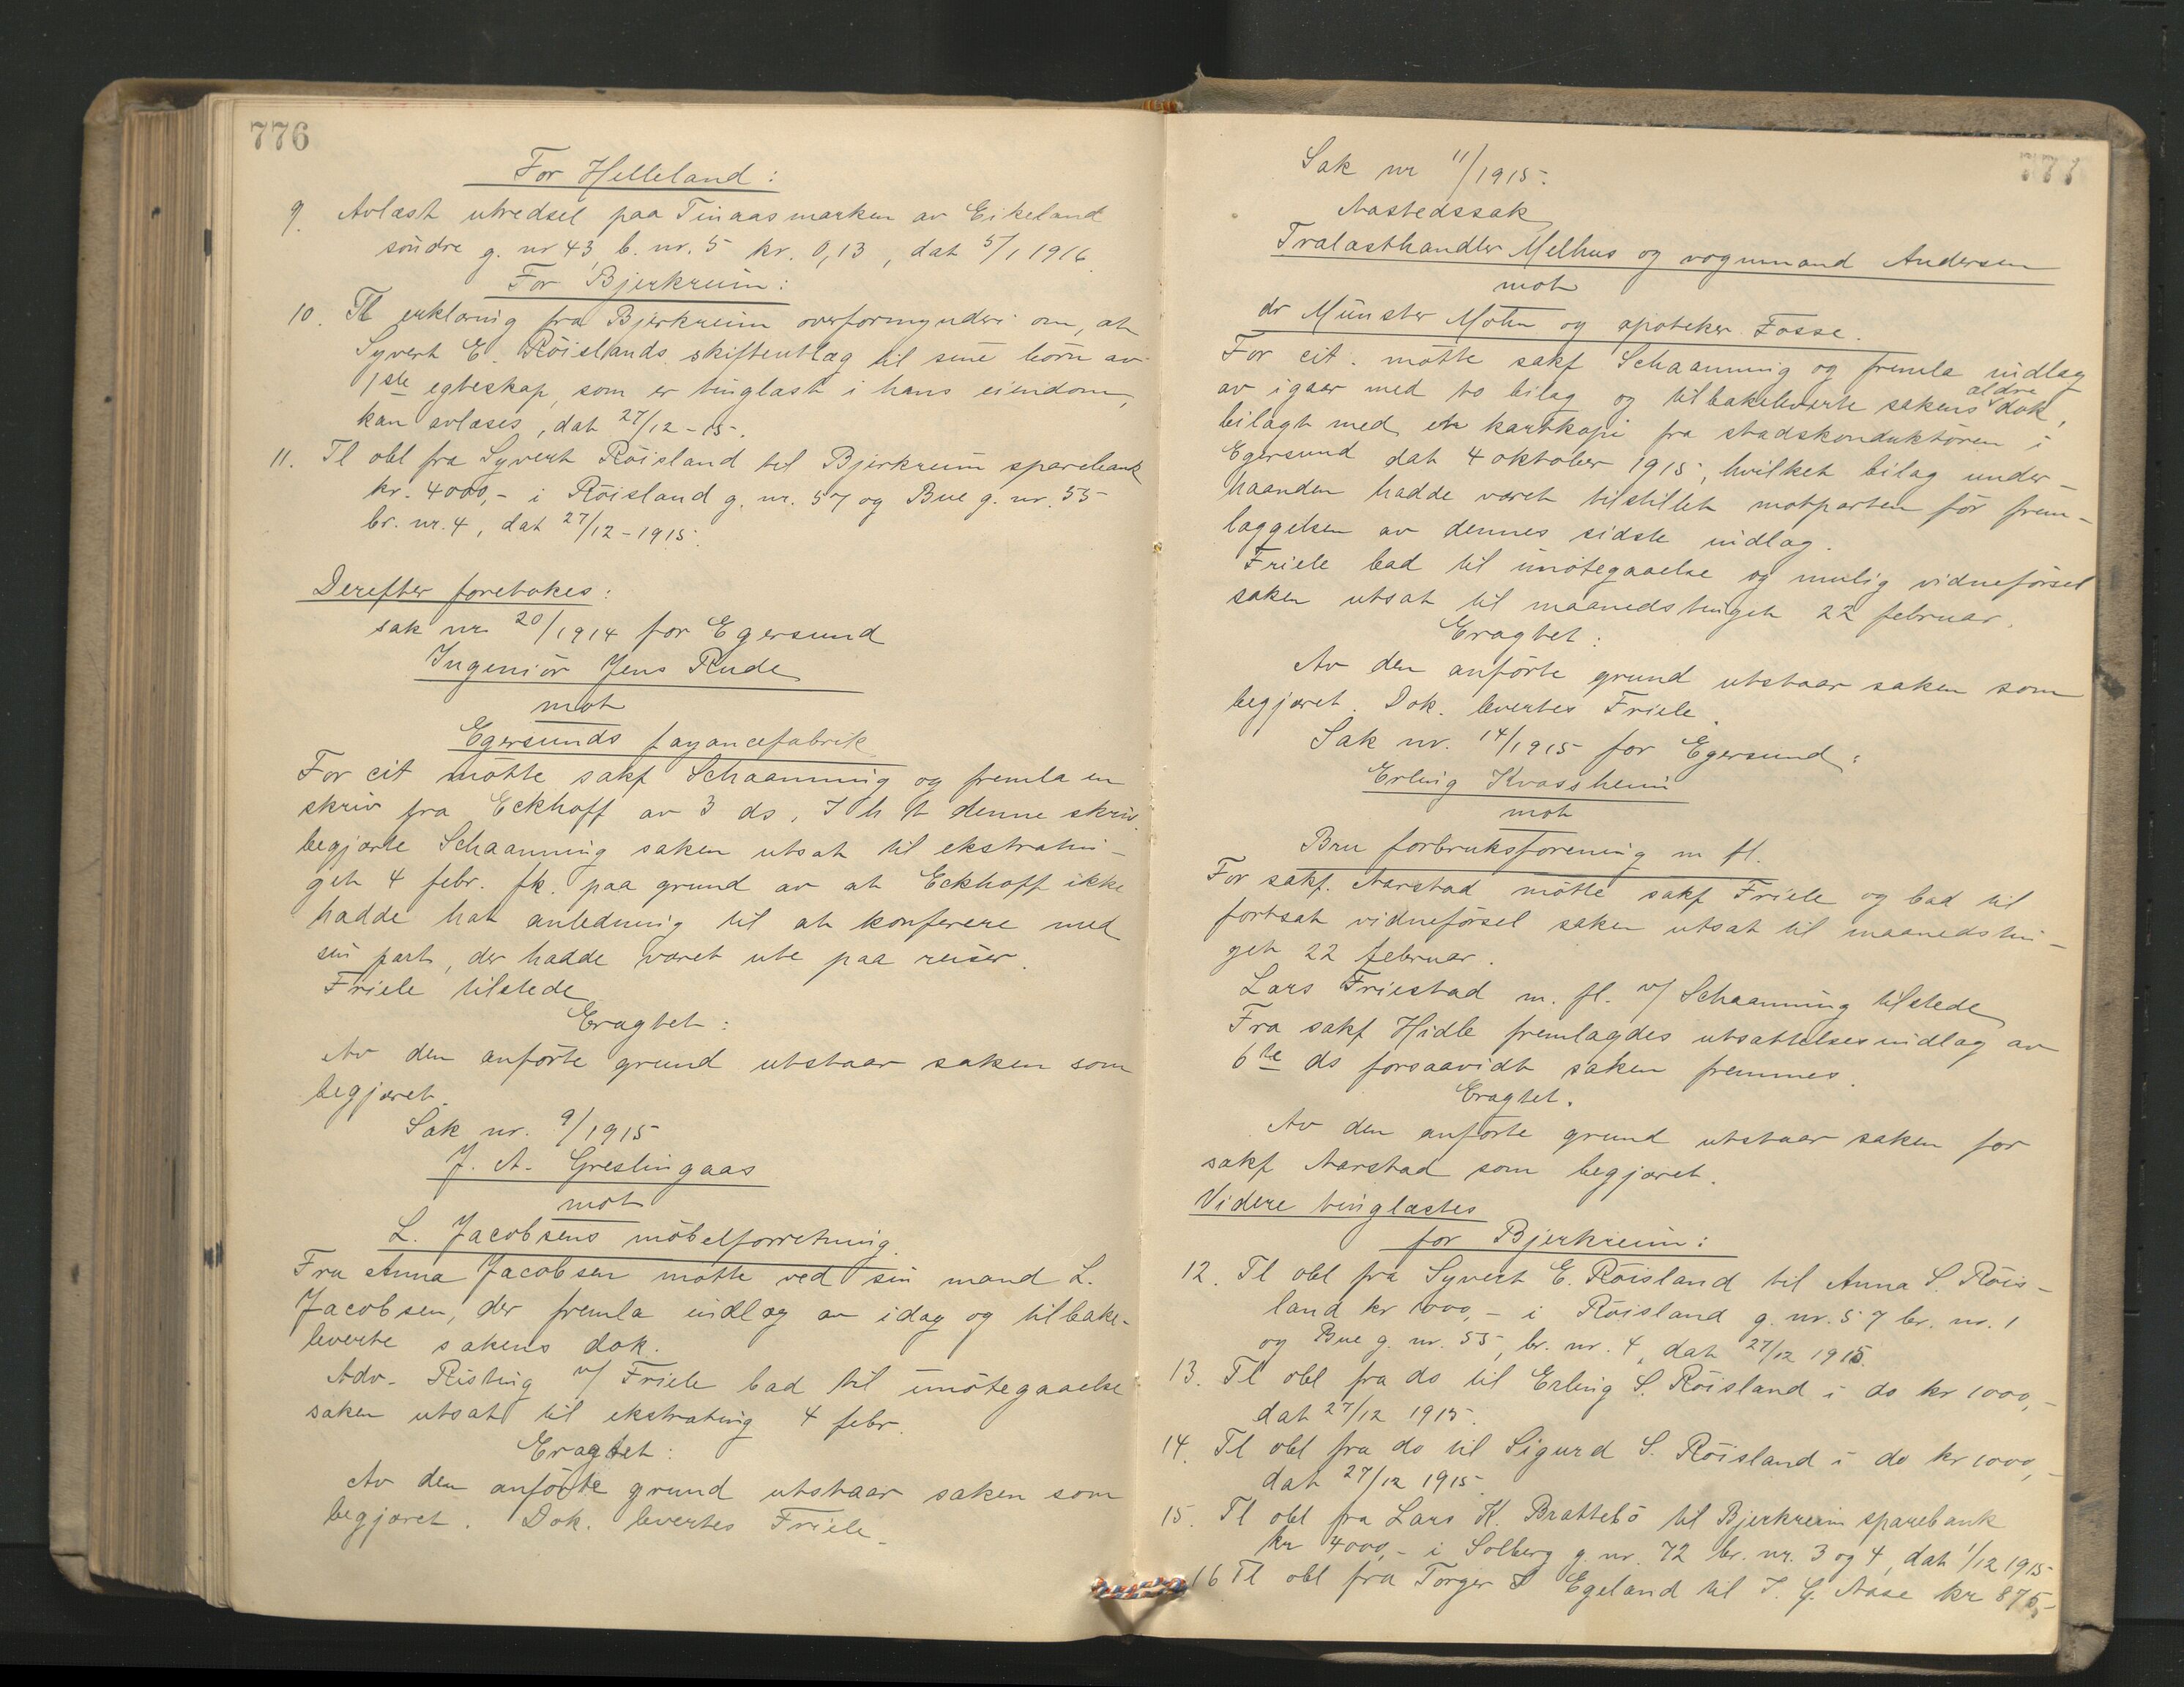 776
For Helleland:
9. Avlæst utredsel paa Tinaasmarken av Eikeland
söndre g. nr 43, b. nr. 5 kr. 0,13, dat 5/1 1916.
For Bjerkreim:
10. Tl erklæring fra Bjerkreim overformynderi om, at
Syvert E. Röislands skifteutlæg til sine börn av
1ste egteskap, som er tinglæst i hans eiendom,
kan avlæses, dat 27/12-15.
11. Tl obl fra Syvert Röisland til Bjerkreim sparebank
kr. 4000,- i Röisland g. nr. 57 og Bue g. nr. 55
br. nr. 4, dat 27/12-1915.
Derefter foretokes:
sak nr 20/1914 for Egersund
Ingeniör Jens Rude
mot
Egersunds fayancefabrik
For cit mötte sakf Schaanning og fremla en
skriv fra Eckhoff av 3 ds. I h t denne skriv.
begjærte Schaanning saken utsat til ekstratin-
get 4 febr. fk. paa grund av at Eckhoff ikke
hadde hat anledning til at konferere med
sin part, der hadde været ute paa reiser.
Friele tilstede
Eragtet:
Av den anförte grund utstaar saken som
begjæret.
Sak nr. 9/1915
J. A. Greslingaas
mot
L. Jacobsens möbelforretning.
Fru Anna Jacobsen mötte ved sin mand L.
Jacobsen, der fremla indlæg av idag og tilbake-
leverte sakens dok.
Adv. Risting v/ Friele bad til imötegaaelse
saken utsat til ekstrating 4 febr.
Eragtet:
Av den anförte grund utstaar saken som
begjæret. Dok. levertes Friele.
777
Sak nr 11/1915.
Aastedssak
Trælasthandler Melhus og vognmand Andersen
mot
dr Münster Mohn og apoteker Fosse.
For cit. mötte sakf Schaanning og fremla indlæg
av igaar med to bilag og tilbakeleverte sakens ældre dok,
bilagt med en kartkopi fra stadskonduktören i
Egersund dat 4 oktober 1915, hvilket bilag under-
haanden hadde været tilstillet motparten för frem-
læggelsen av dennes sidste indlæg.
Friele bad til imötegaaelse og mulig vidneförsel
saken utsat til maanedstinget 22 februar.
Eragtet:
Av den anförte grund utstaar saken som
begjæret. Dok. levertes Friele.
Sak nr. 14/1915 for Egersund:
Erling Kvassheim
mot
Bru forbruksforening m fl.
For sakf. Aarstad mötte sakf Friele og bad til
fortsat vidneförsel saken utsat til maanedstin-
get 22 februar.
Lars Friestad m. fl. v/ Schaanning tilstede
Fra sakf Hidle fremlagdes utsættelsesindlæg av
6te ds forsaavidt saken fremmes.
Eragtet.
Av den anförte grund utstaar saken for
sakf Aarstad som begjæret.
Videre tinglæstes
for Bjerkreim:
12. Tl obl fra Syvert E. Röisland til Anna S. Röis-
land kr 1000,- i Röisland g. nr. 57 br. nr. 1
og Bue g. nr. 55, br. nr. 4, dat 27/12 1915.
13. Tl obl fra do til Erling S. Röisland i do kr 1000,-
dat 27/12 1915.
14. Tl obl fra do til Sigurd S. Röisland i do kr 1000,-
dat 27/12 1915.
15. Tl obl fra Lars K. Brattebö til Bjerkreim sparebank
kr 4000,- i Solberg g. nr. 72 br. nr. 3 og 4, dat 1/12 1915
16 Tl obl fra Torger Egeland til I. G. Aase kr 875,-